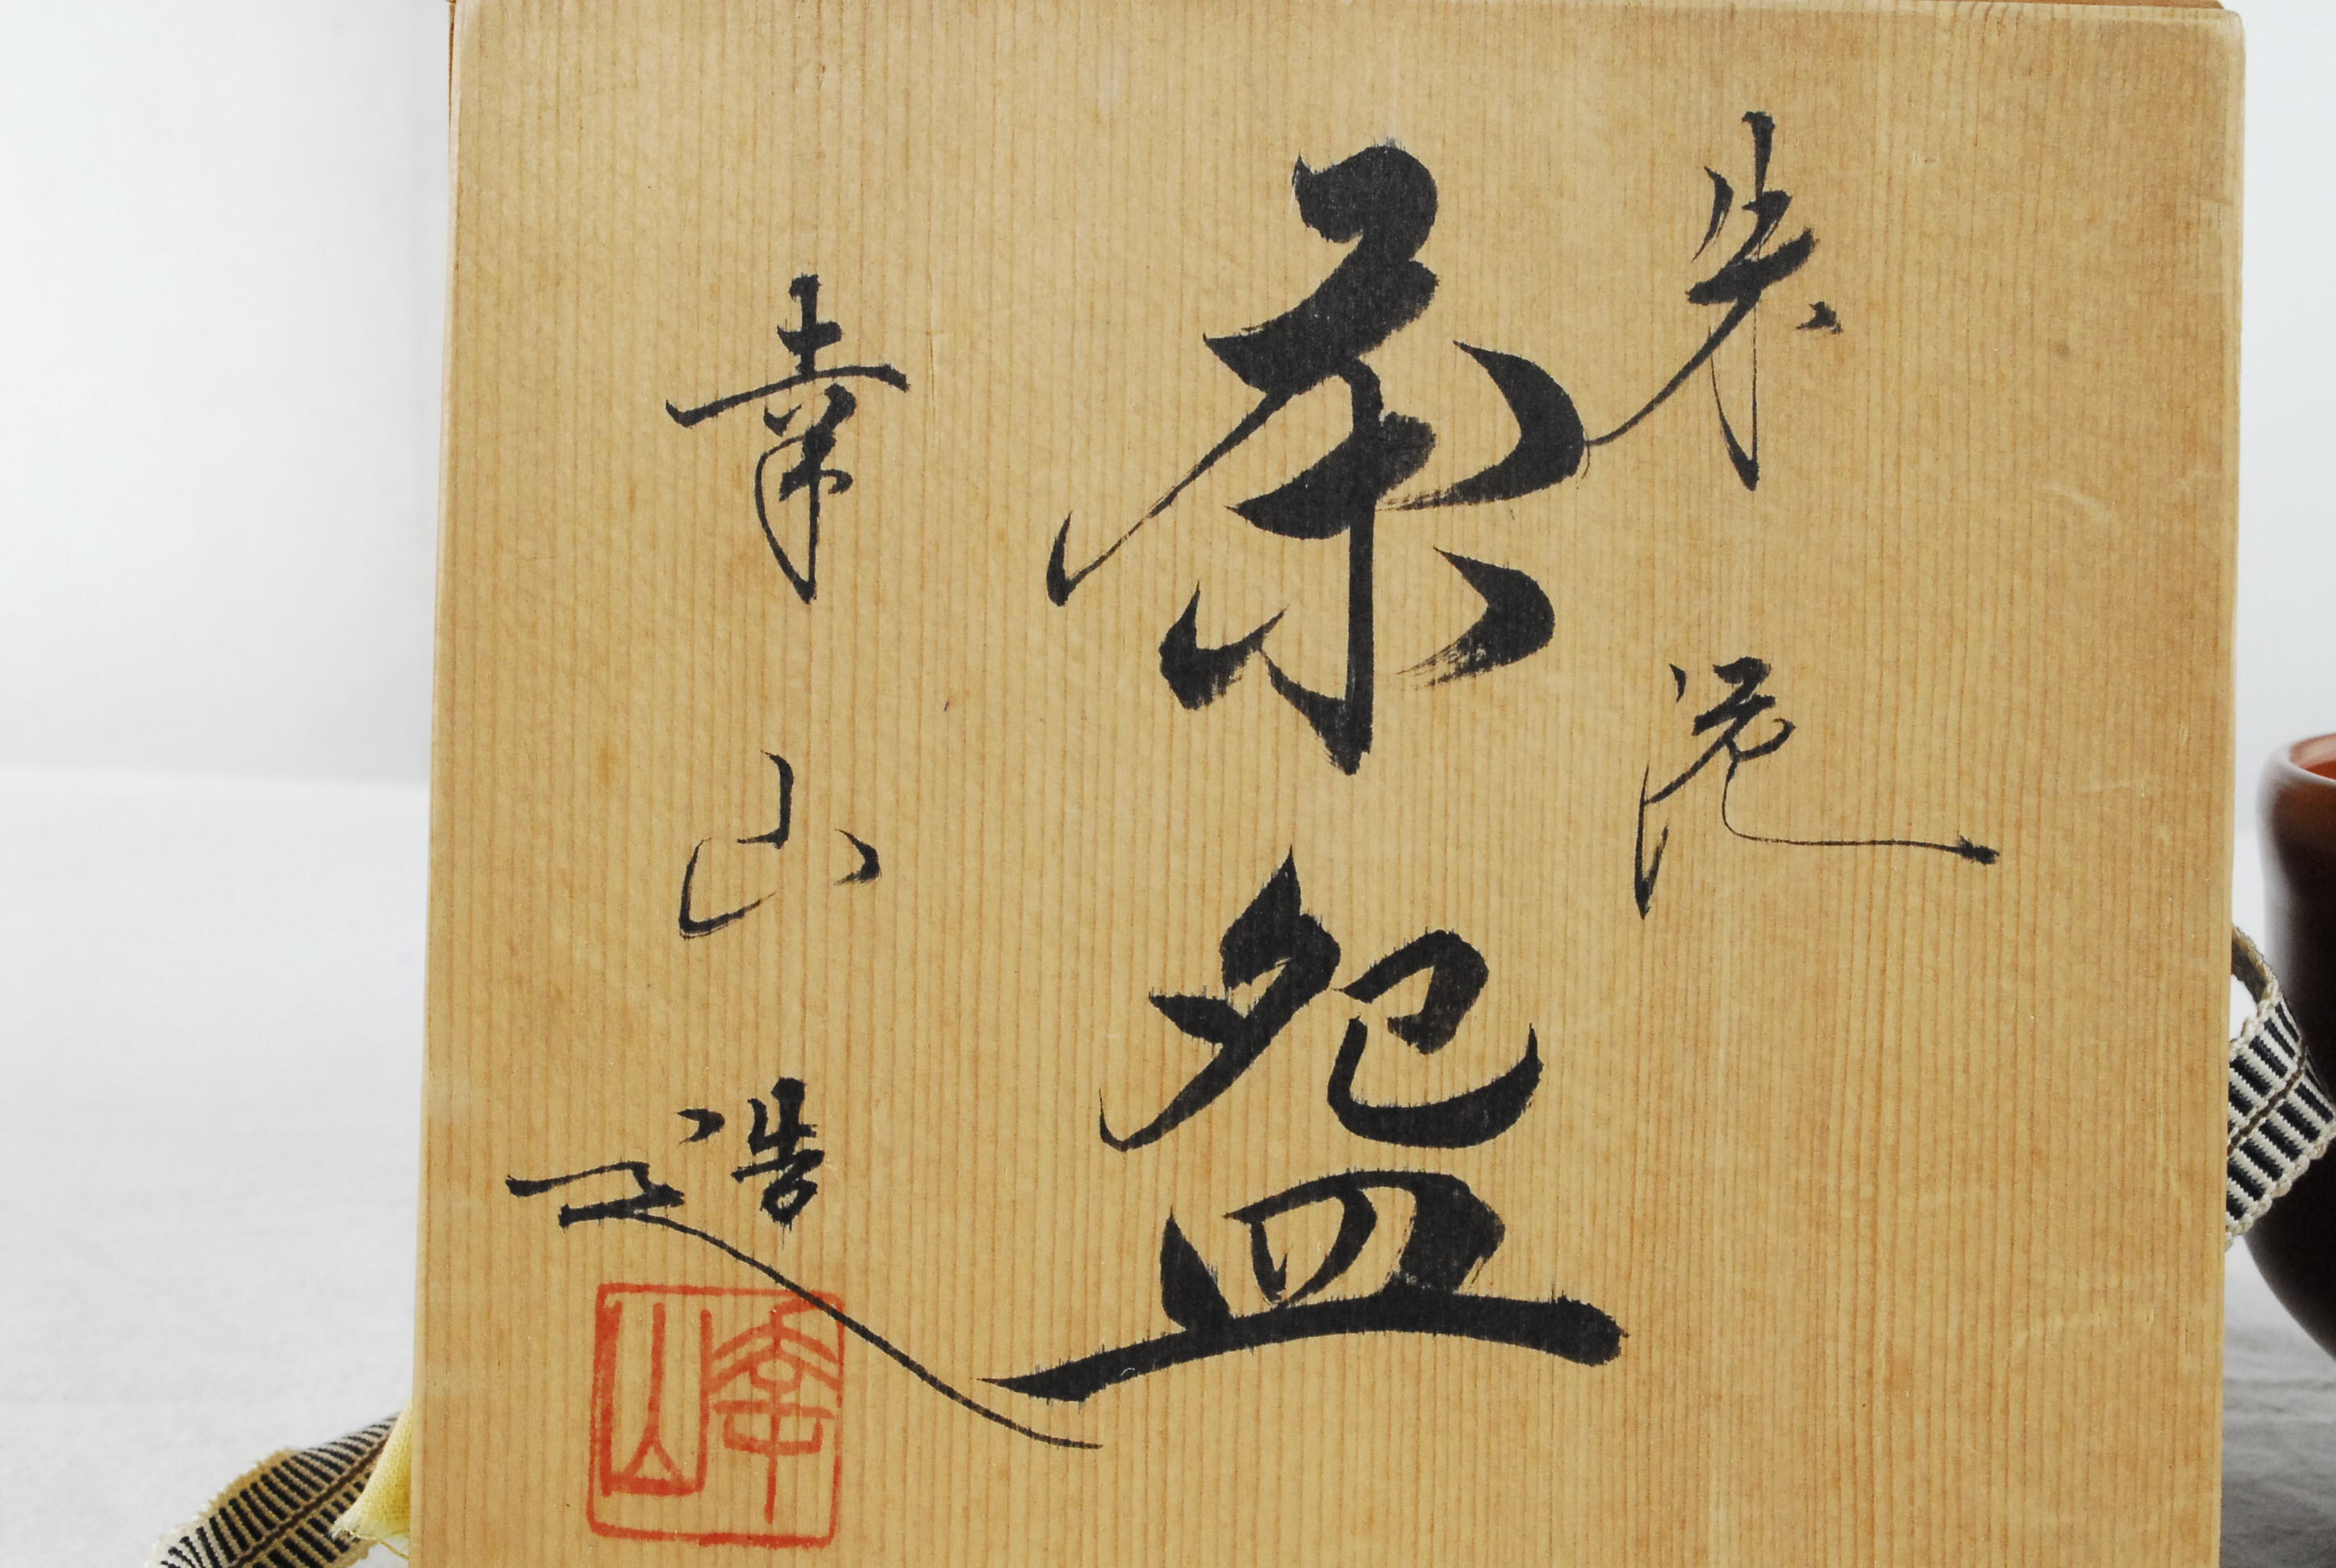 朱泥
茶盌
幸山造
幸山